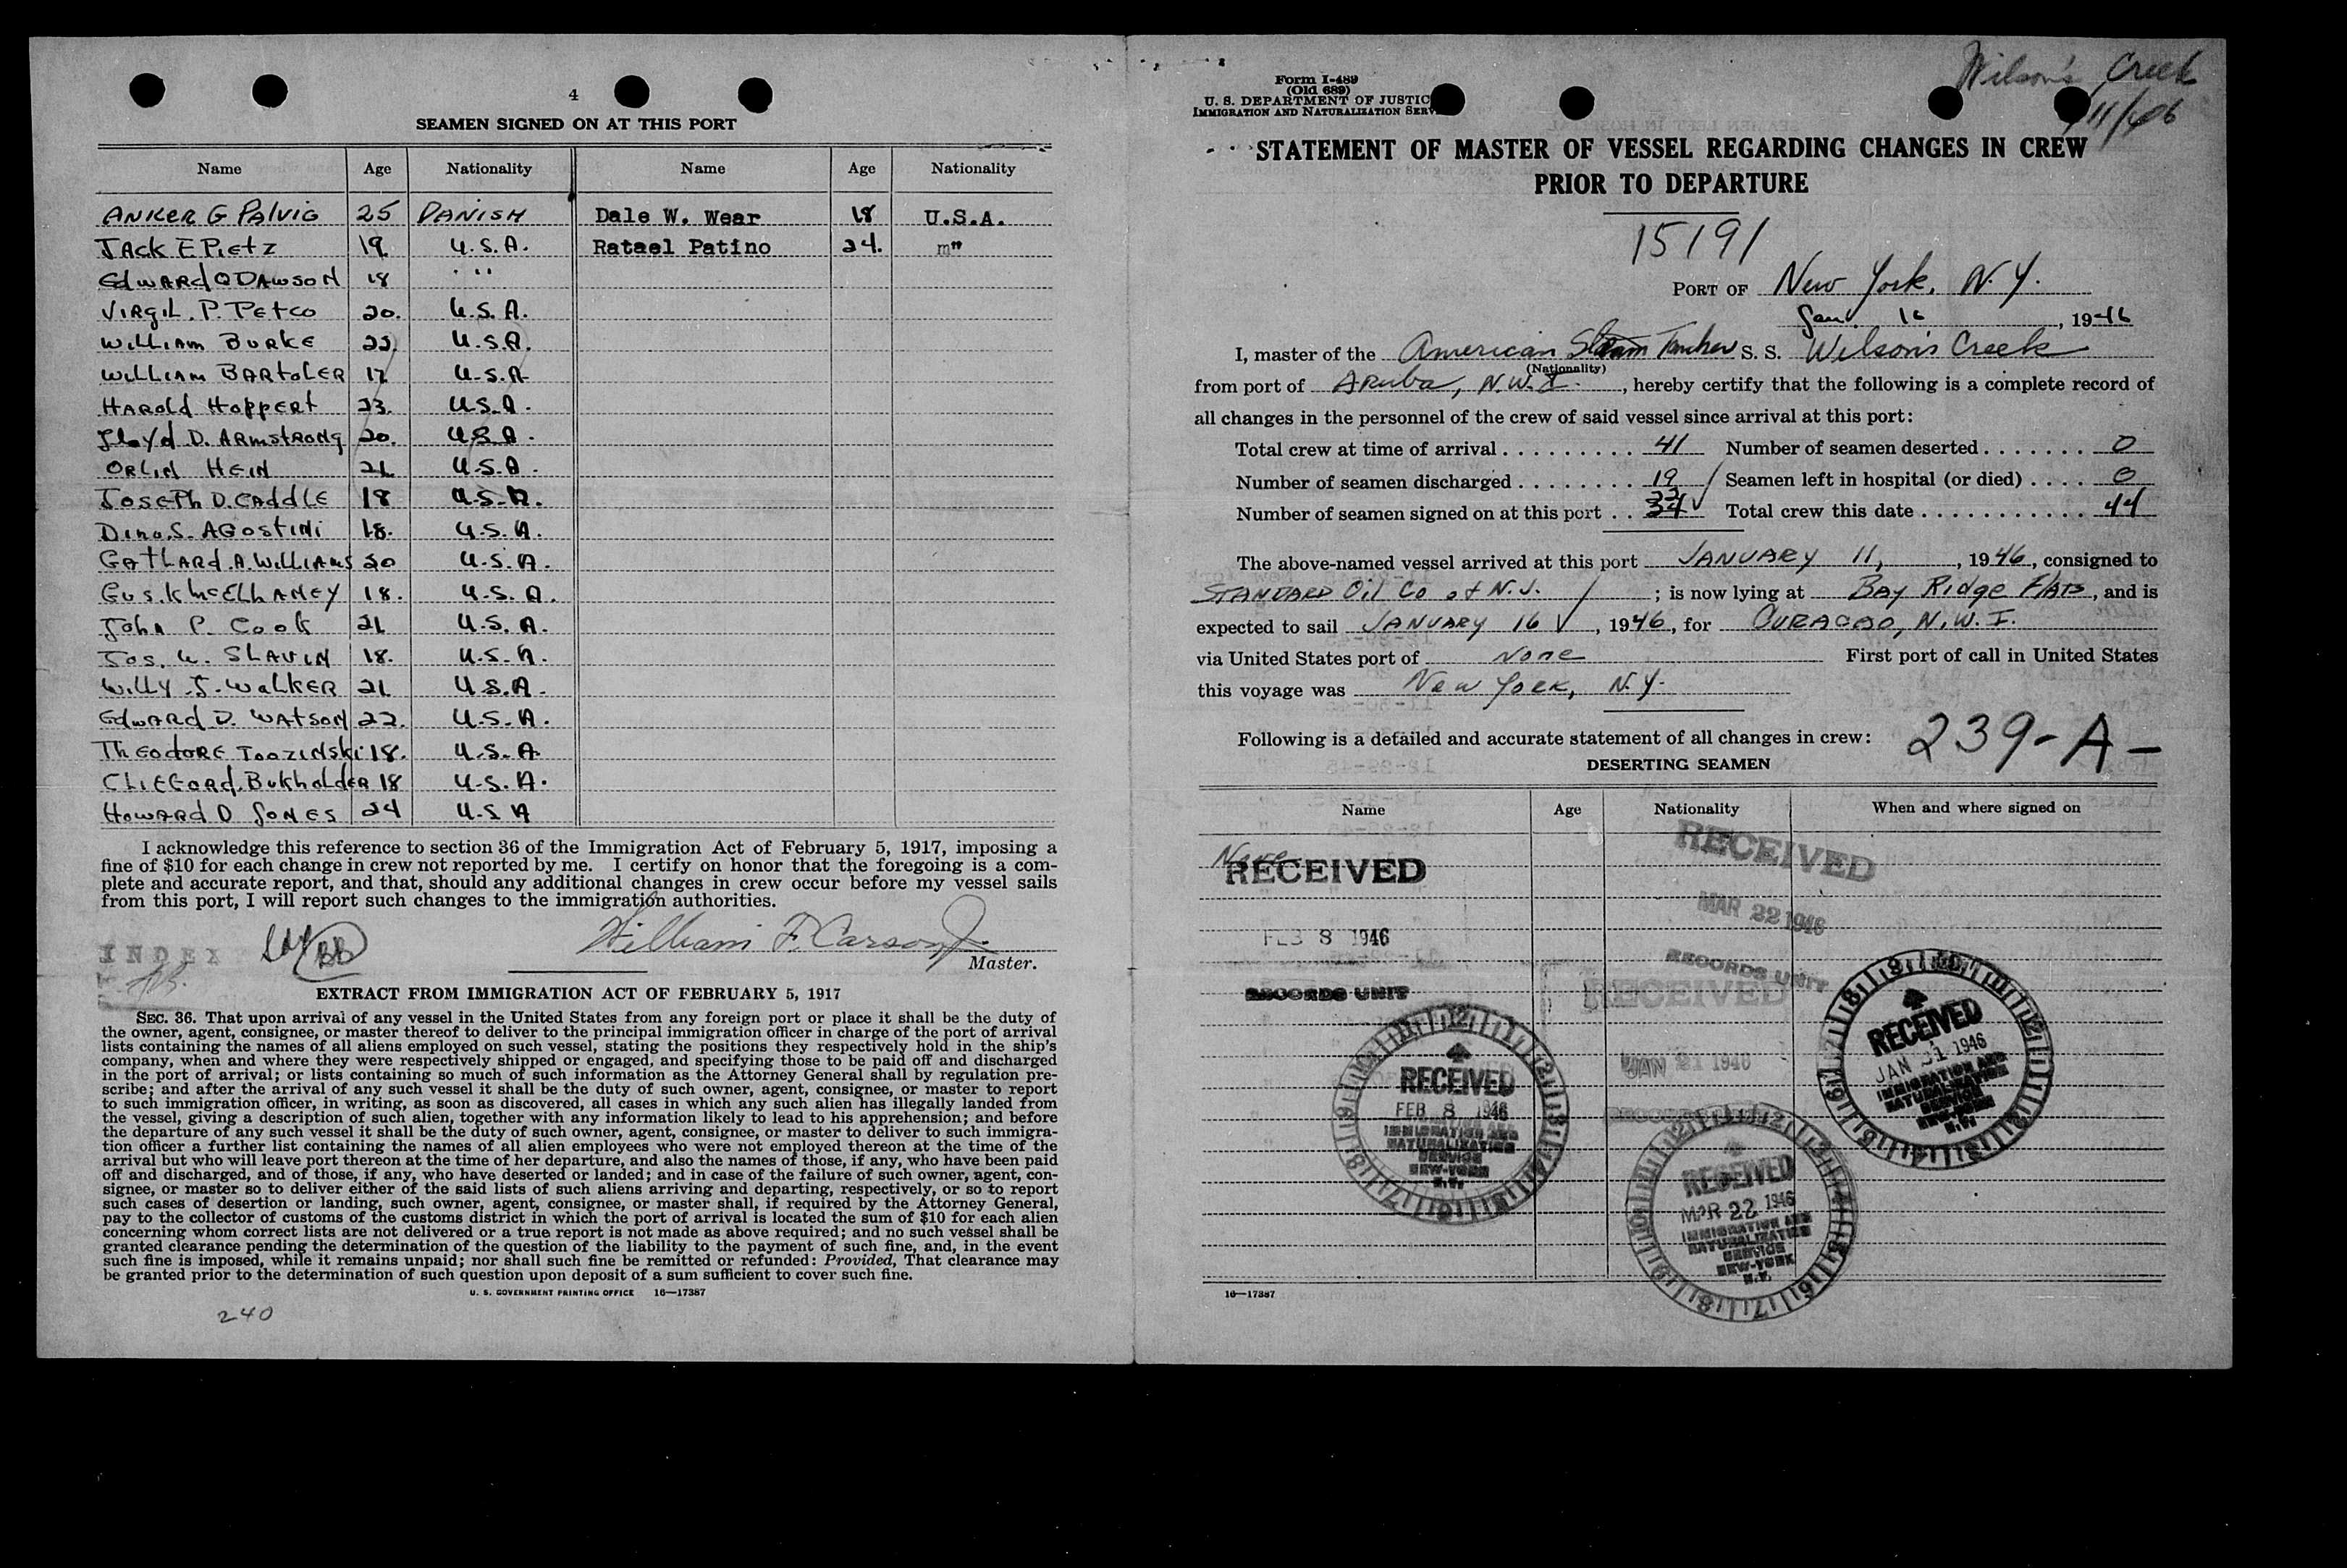 4
SEAMEN SIGNED ON AT THIS PORT
Name Age Nationality Name Age Nationality
ANKER G PALVIG 25 DANISH Dale W. Wear 18 U.S.A.
JACK E PIETZ 19 U.S.A. Ratael Patino 24. m"
EdWARd O DAWSON 18 "
VIRgiL. P. PETCO 20. U.S.A.
WILLIAM BURKE 23. U.S.A.
WILLIAM BARTOLER 17 U.S.A
HAROLd HOPPERT 23. U.S.A.
FLoyd D. ARMSTRONg 20. U.S.A.
ORLIN HEIN 21 U.S.A.
JOSEPh D. CAddLE 18 U.S.A.
Dino. S. AGOSTINI 18. U.S.A.
GATHARd. A. WILLIAMS 20 U.S.A.
GUS. K McELhANEY 18. U.S.A.
John P. Cook 21 U.S.A.
Jos. W. SLAVIN 18. U.S.A.
WILLY J. WALKER 21 U.S.A.
EdWARd D. WATSON 22. U.S.A.
ThEOdORE TOOZINSki 18. U.S.A
CLIFFORd. BUKholdER 18 U.S.A.
HOWARD D JONES 24 U.S A
I acknowledge this reference to section 36 of the Immigration Act of February 5, 1917, imposing a
fine of $10 for each change in crew not reported by me. I certify on honor that the foregoing is a com-
plete and accurate report, and that, should any additional changes in crew occur before my vessel sails
from this port, I will report such changes to the immigration authorities.
INDEX BB William F. Carson Jr.
Master.
EXTRACT FROM IMMIGRATION ACT OF FEBRUARY 5, 1917
SEC. 36. That upon arrival of any vessel in the United States from any foreign port or place it shall be the duty of
the owner, agent, consignee, or master thereof to deliver to the principal immigration officer in charge of the port of arrival
lists containing the names of all aliens employed on such vessel, stating the positions they respectively hold in the ship's
company, when and where they were respectively shipped or engaged, and specifying those to be paid off and discharged
in the port of arrival; or lists containing so much of such information as the Attorney General shall by regulation pre-
scribe; and after the arrival of any such vessel it shall be the duty of such owner, agent, consignee, or master to report
to such immigration officer, in writing, as soon as discovered, all cases in which any such alien has illegally landed from
the vessel, giving a description of such alien, together with any information likely to lead to his apprehension; and before
the departure of any such vessel it shall be the duty of such owner, agent, consignee, or master to deliver to such immigra-
tion officer a further list containing the names of all alien employees who were not employed thereon at the time of the
arrival but who will leave port thereon at the time of her departure, and also the names of those, if any, who have been paid
off and discharged, and of those, if any, who have deserted or landed; and in case of the failure of such owner, agent, con-
signee, or master so to deliver either of the said lists of such aliens arriving and departing, respectively, or so to report
such cases of desertion or landing, such owner, agent, consignee, or master shall, if required by the Attorney General,
pay to the collector of customs of the customs district in which the port of arrival is located the sum of $10 for each alien
concerning whom correct lists are not delivered or a true report is not made as above required; and no such vessel shall be
granted clearance pending the determination of the question of the liability to the payment of such fine, and, in the event
such fine is imposed, while it remains unpaid; nor shall such fine be remitted or refunded: Provided, That clearance may
be granted prior to the determination of such question upon deposit of a sum sufficient to cover such fine.
U. S. GOVERNMENT PRINTING OFFICE 16—17387
240
Wilson's Creek
Form I-489
(Old 689)
U. S. DEPARTMENT OF JUSTIC
IMMIGRATION AND NATURALIZATION SERV
STATEMENT OF MASTER OF VESSEL REGARDING CHANGES IN CREW
PRIOR TO DEPARTURE
15191
PORT OF New York, N.Y.
Jan. 16, 1946
I, master of the American Steam Tanker S. S. Wilson's Creek
(Nationality)
from port of Aruba, N.W.I., hereby certify that the following is a complete record of
all changes in the personnel of the crew of said vessel since arrival at this port:
Total crew at time of arrival . . . . . . . . . 41 Number of seamen deserted . . . . . . . 0
Number of seamen discharged . . . . . . . . 19 Seamen left in hospital (or died) . . . . 0
Number of seamen signed on at this port . . 22 Total crew this date . . . . . . . . . . . 44
The above-named vessel arrived at this port JANUARY 11, 1946, consigned to
STANDARD Oil Co of N.J. ; is now lying at BAY Ridge FlATS, and is
expected to sail JANUARY 16, 1946, for CURACAO, N.W.I.
via United States port of None First port of call in United States
this voyage was New York, N.Y.
Following is a detailed and accurate statement of all changes in crew: 239-A-
DESERTING SEAMEN
Name Age Nationality When and where signed on
None
RECEIVED
FEB 8 1946
RECORDS UNIT
RECEIVED
MAR 22 1946
RECORDS UNIT
RECEIVED
JAN 21 1946
RECORDS
RECEIVED
JAN 21 1946
IMMIGRATION AND
NATURALIZATION
SERVICE
NEW-YORK
N.Y.
RECEIVED
FEB 8 1946
IMMIGRATION AND
NATURALIZATION
SERVICE
NEW-YORK
N.Y.
RECEIVED
MAR 22 1946
IMMIGRATION AND
NATURALIZATION
SERVICE
NEW-YORK
N.Y.
16—17387